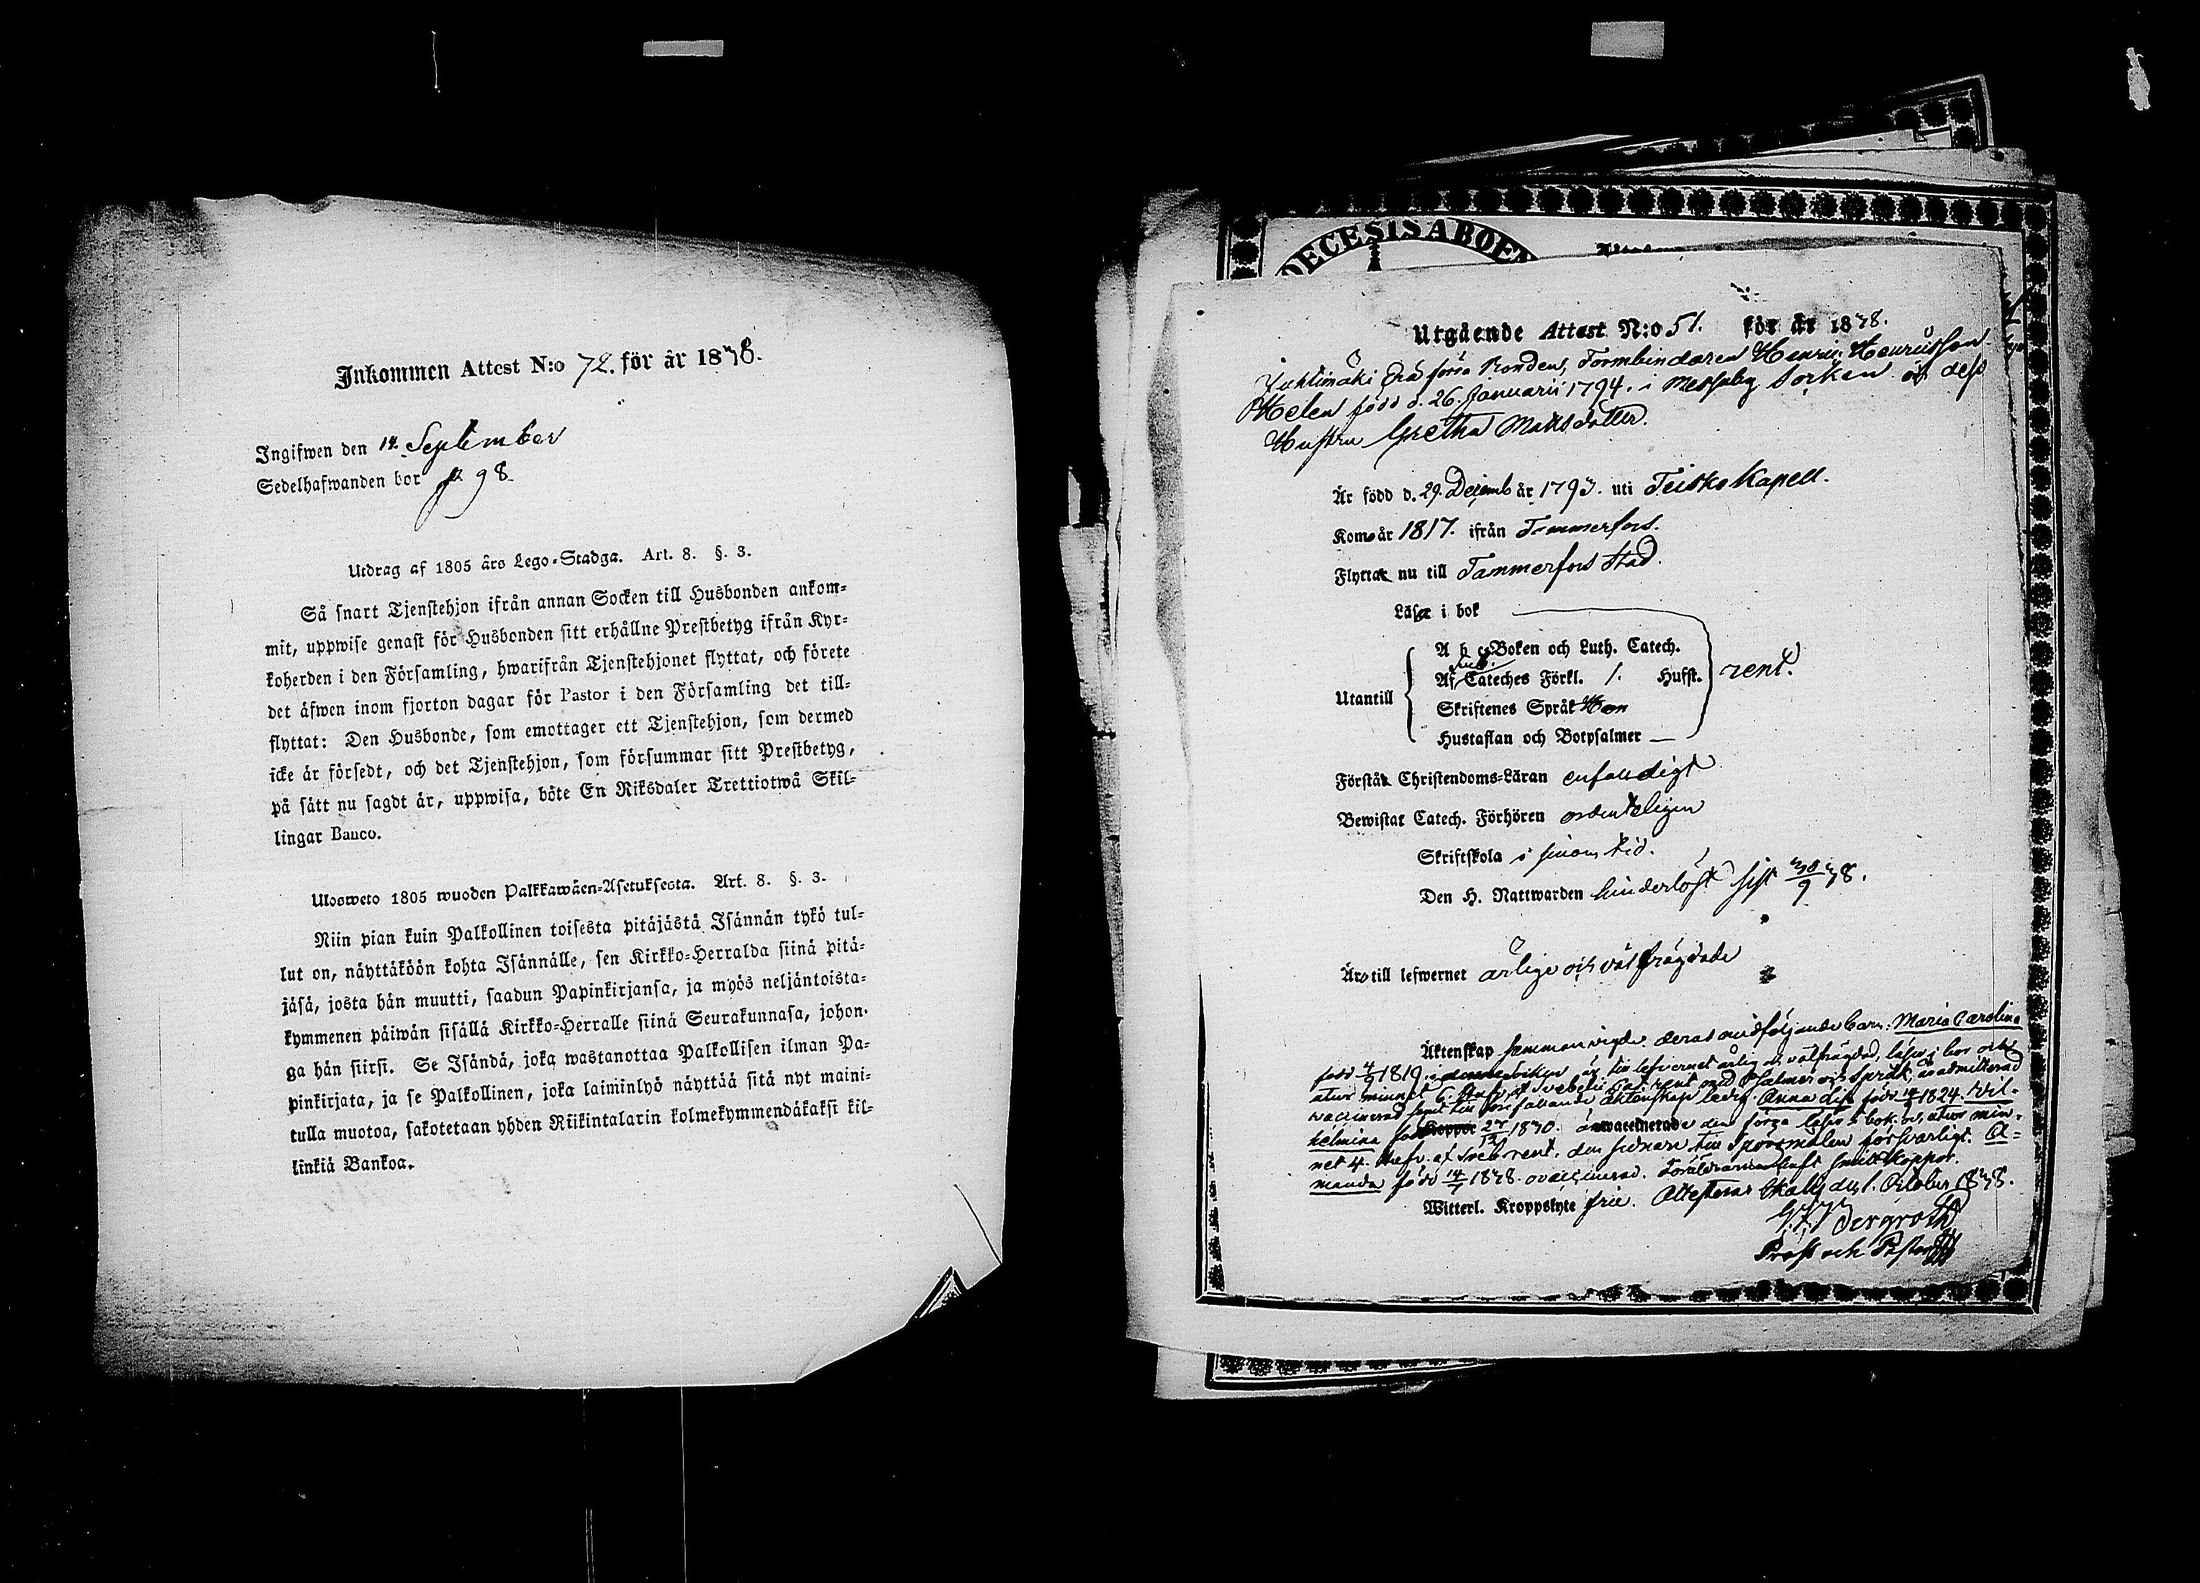 Inkommen Attest N:o 72. för år 1838.
Ingifwen den 14. September
Sedelhafwanden bor p 98.
Utdrag af 1805 års Lego-Stadga. Art. 8. §. 3.
Så snart Tjenstehjon ifrån annan Socken till Husbonden ankom-
mit, uppwise genast för Husbonden sitt erhållne Prestbetyg ifrån Kyr-
koherden i den Församling, hwarifrån Tjenstehjonet flyttat, och förete
det äfwen inom fjorton dagar för Pastor i den Församling det till-
flyttat: Den Husbonde, som emottager ett Tjenstehjon, som dermed
icke är försedt, och det Tjenstehjon, som försummar sitt Prestbetyg,
på sätt nu sagdt är, uppwisa, böte En Riksdaler Trettiotwå Skil-
lingar Banco.
Ulosweto 1805 wuoden Palkkawäen-Asetuksesta. Art. 8. §. 3.
Niin pian kuin Palkollinen toisesta pitäjästä Isännän tykö tul-
lut on, näyttäköön kohta Isännälle, sen Kirkko-Herralda siinä pitä-
jäsä, josta hän muutti, saadun Papinkirjansa, ja myös neljäntoista-
kymmenen päiwän sisällä Kirkko-Herralle siinä Seurakunnasa, johon-
ga hän siirsi. Se Isändä, joka wastanottaa Palkollisen ilman Pa-
pinkirjata, ja se Palkollinen, joka laiminlyö näyttää sitä nyt maini-
tulla muotoa, sakotetaan yhden Riikintalarin kolmekymmendäkaksi kil-
linkiä Bankoa.
DECESIS ABOEN
Utgående Attest N:o 51. för år 1838.
från förra Ronden, Formbindaren Henric Henricsson
Helen född d. 26. Januarii 1794. i Messuby Socken och dess
Hustru Gretha Matsdotter.
Är född d. 29. Decemb år 1793. uti Teisko Kapell.
Kom år 1817. ifrån Tammerfors.
Flyttar nu till Tammerfors Stad.
Läser i bok
A b c Boken och Luth. Catech.
Af Cateches Förkl. 1. Hufst. rent.
Utantill
Skriftenes Språk
Hustaflan och Botpsalmer
Förstår Christendoms-Läran enfaldigt
Bewistat Catech. Förhören ordenteligen
Skriftskola i sinom tid.
Den H. Nattwarden hinderlöst sist 30/9 38.
Äro till lefwernet ärlige och välfrägdade
Äktenskap sammanvigde. deras medföljande barn: Maria Carolina
född 4/9 1819 är till lefvernet ärlig och välfrägdad, läser i bok och
utur minnet Svebelii Cat. rent med Psalmer och Språk, är admitterad
vaccinerad samt till äktenskap ledig. Anna Lisa född 1824. Wil-
helmina född 27/12 1830. är vaccinerade den förra läser i bok och utur min-
net 4. Hufv. af Sveb rent. den sednare till Spörsmålen försvarligt. A-
manda född 14/7 1838. ovaccinerad. Föräldrarne haft Smittkoppor.
Witterl. Kroppslyte frie. Attesterar d. 1. October 1838.
Bergroth
Prost och Pastor